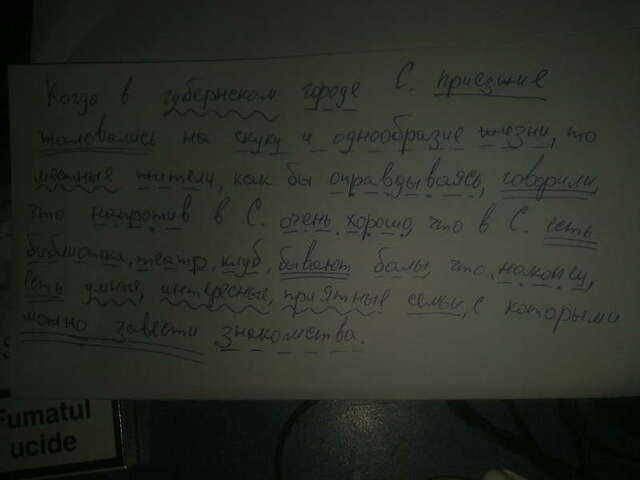 Когда в губернском городе С. приезжие
жаловались на скуку и однообразие жизни, то
местные жители, как бы оправдываясь, говорили,
что напротив в С. очень хорошо, что в С. есть
библиотека, театр, клуб, бывают балы, что, наконец,
есть умные, интересные, приятные семьи, с которыми
можно завести знакомства.
Fumatul
ucide